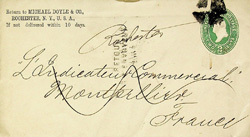 Return to MICHAEL DOYLE & CO.,
ROCHESTER, N. Y., U. S. A.,
If not delivered within 10 days.
Rochester
L'Indicateur Commercial
Montpellier
France